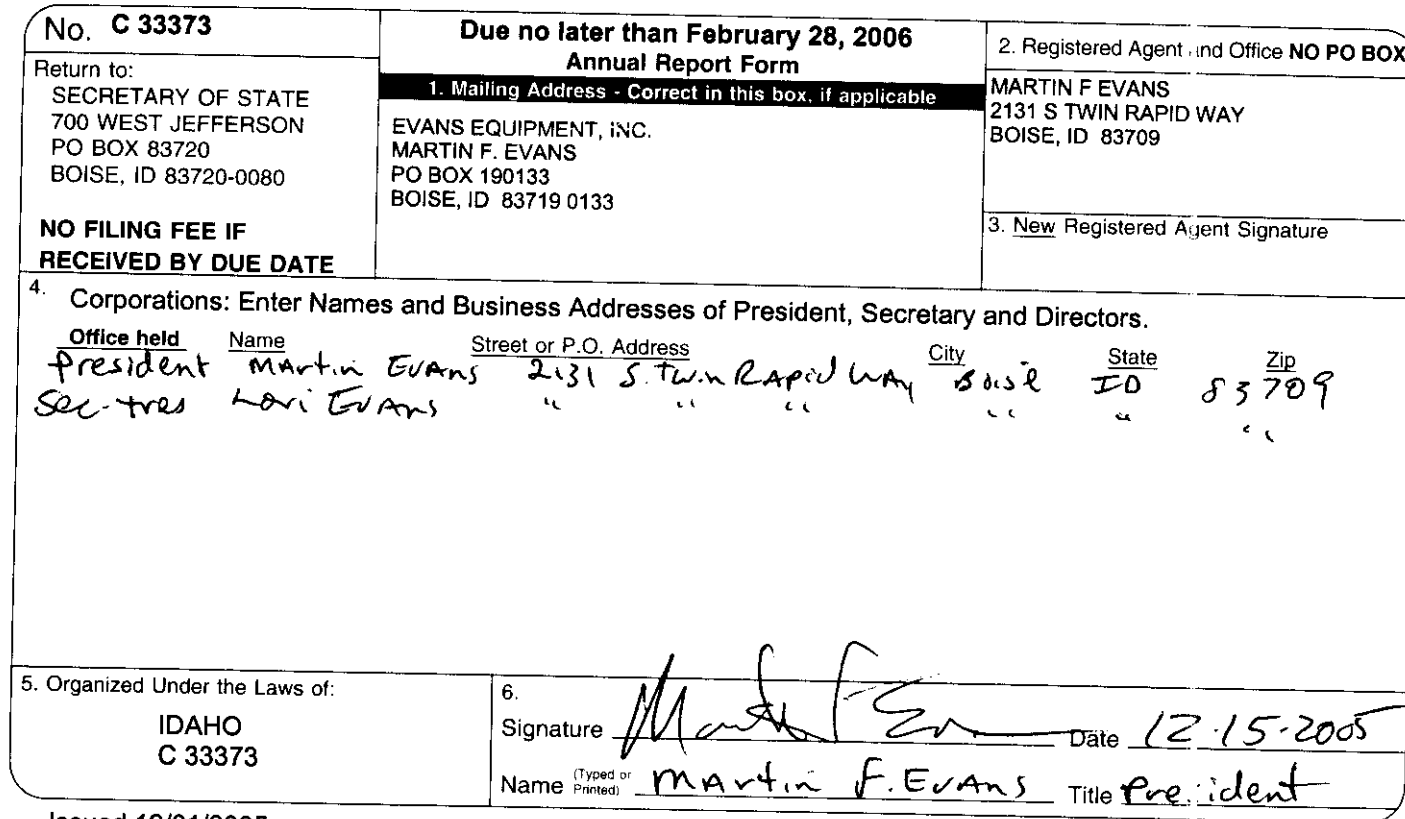 No. C 33373
Return to:
SECRETARY OF STATE
700 WEST JEFFERSON
PO BOX 83720
BOISE, ID 83720-0080
NO FILING FEE IF
RECEIVED BY DUE DATE
Due no later than February 28, 2006
Annual Report Form
1. Mailing Address - Correct in this box, if applicable
EVANS EQUIPMENT, INC.
MARTIN F. EVANS
PO BOX 190133
BOISE, ID 83719 0133
2. Registered Agent and Office NO PO BOX
MARTIN F EVANS
2131 S TWIN RAPID WAY
BOISE, ID 83709
3. New Registered Agent Signature
4. Corporations: Enter Names and Business Addresses of President, Secretary and Directors.
Office held Name Street or P.O. Address City State Zip
President Martin Evans 2131 S. Twin Rapid Way Boise ID 83709
Sec-tres Lori Evans " " " " " "
5. Organized Under the Laws of:
IDAHO
C 33373
6.
Signature Martin F Evans Date 12-15-2005
Name (Typed or Printed) Martin F. Evans Title President